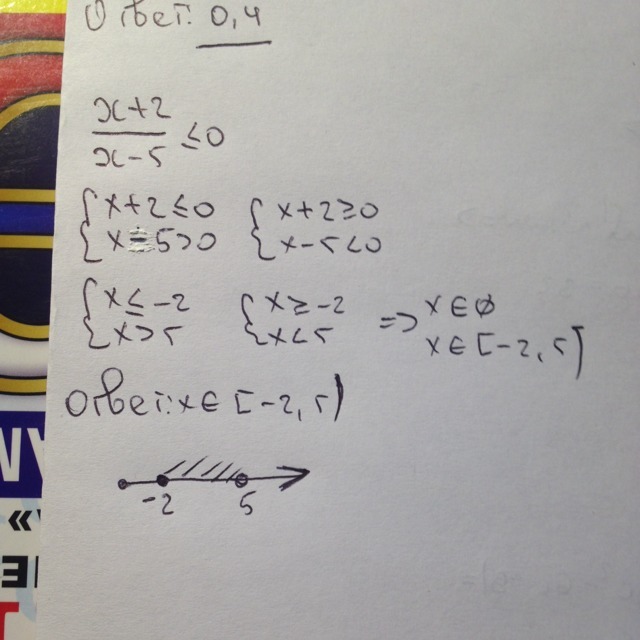 Ответ: 0,4
x+2
x-5 ≤0
{ x+2≤0 { x+2≥0
{ x-5>0 { x-5<0
{ x≤-2 { x≥-2 => x∈ø
{ x>5 { x<5 x∈[-2,5]
Ответ: x∈[-2,5)
-2 5
«